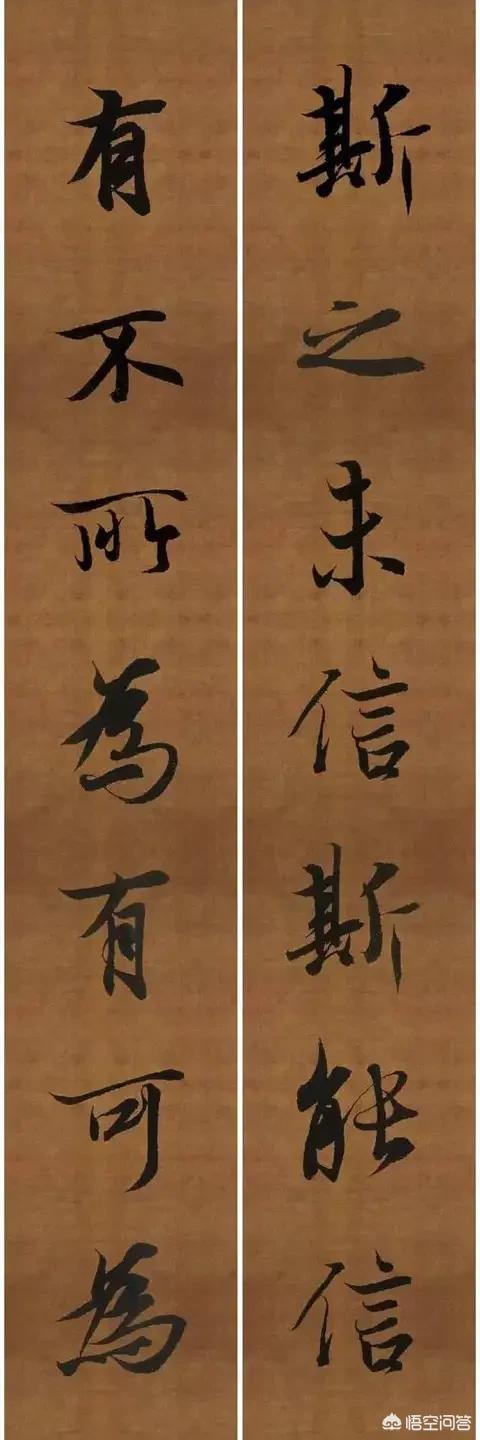 斯之未信斯能信
有不所為有可為
悟空问答